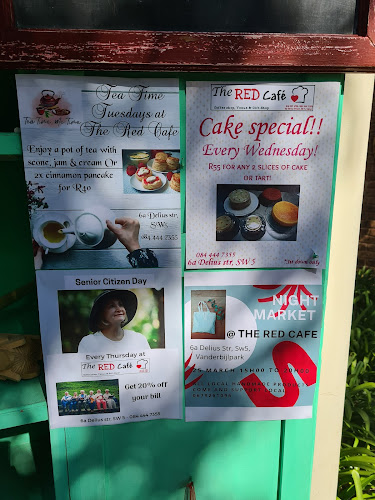 Tea Time
Tuesdays at
The Red Cafe
Enjoy a pot of tea with
scone, jam & cream Or
2x cinnamon pancake
for R40
6a Delius str,
SW5
084 444 7355
The RED Café
Cake special!!
Every Wednesday!
R55 FOR ANY 2 SLICES OF CAKE
OR TART!
084 444 7355
6a Delius str, SW5
Senior Citizen Day
Every Thursday at
The RED Café
Get 20% off
your bill
6a Delius str, SW5 - 084 444 7355
NIGHT
MARKET
@ THE RED CAFE
6a Delius Str, Sw5,
Vanderbijlpark
25 MARCH 15H00 TO
ALL LOCAL HANDMADE PRODUCTS
COME AND SUPPORT LOCAL